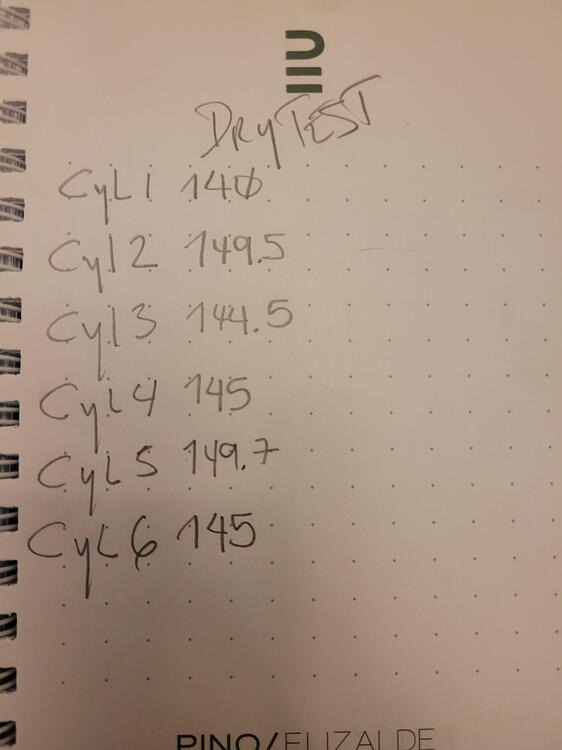 DRy TEST
CyL 1 140
Cyl 2 149.5
Cyl 3 144.5
CyL 4 145
CyL 5 149.7
CyL 6 145
PINO/ELIZALDE